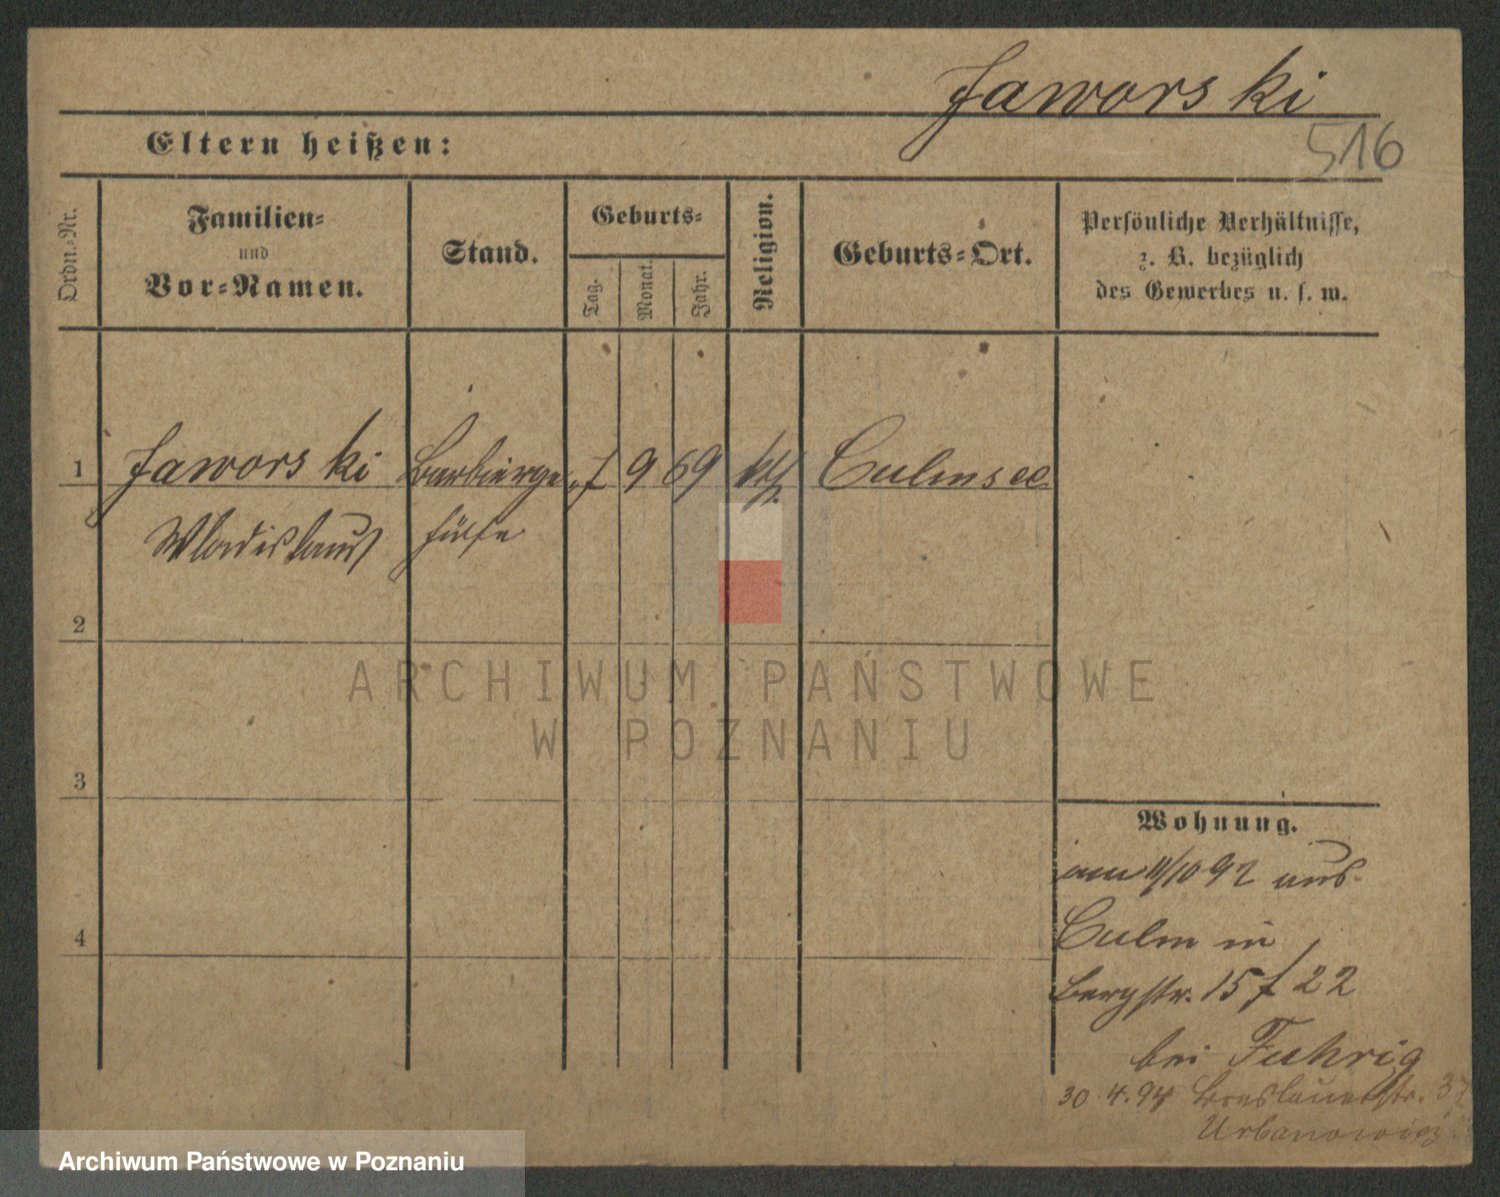 Jaworski
516
Eltern heißen:
Ordn.-Nr.
Familien-
und
Vor-Namen.
Stand.
Geburts-
Tag.
Monat.
Jahr.
Religion.
Geburts-Ort.
Persönliche Verhältnisse,
z. B. bezüglich
des Gewerbes u. s. w.
1 Jaworski Barbierge- 7 9 69 kth. Culmsee
Wladislaus hülfe
2
ARCHIWUM PAŃSTWOWE
W POZNANIU
3
Wohnung.
am 11/10 92 aus
4
Culm in
Bergstr. 15 f 22
bei Fuhrig
30.4.94 Breslauerstr. 37
Urbanowicz
Archiwum Państwowe w Poznaniu